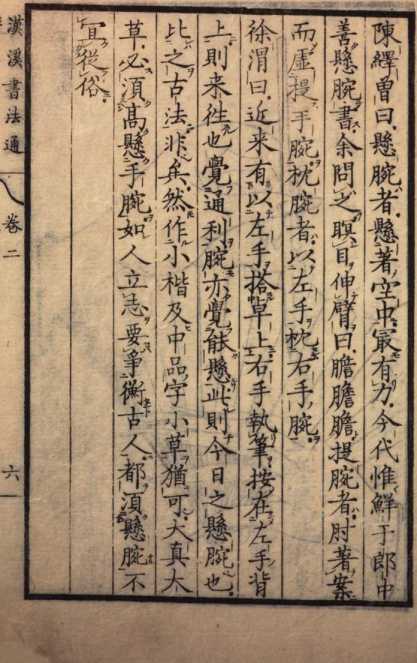 陳繹曾曰懸腕者懸著空中最有力今代惟鮮于郎中
善懸腕書余問之瞑目伸臂曰膽膽膽提腕者肘著案
而虛提手腕枕腕者以左手枕右手腕
徐渭曰近来有以左手搭卓上右手執筆按在左手背
上則来往也覺通利腕亦覺能懸此則今日之懸腕也
比之古法非矣然作小楷及中品字小草猶可大真大
草必須高懸手腕如人立志要爭衡古人都須懸腕不
宜從俗
漢溪書法通
卷二
六